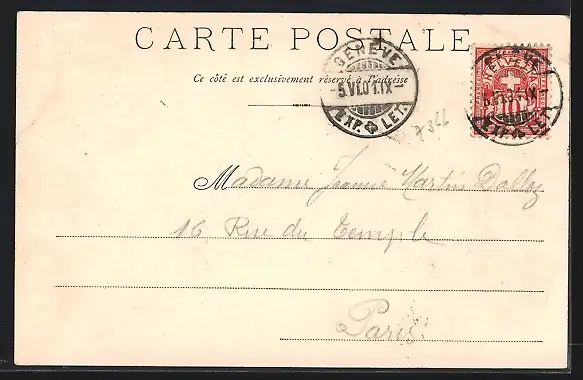 CARTE POSTALE
Ce côté est exclusivement réservé à l'adresse
GENÈVE
5.VI.01.IX
EXP. LET.
HELVETIA
10
EXP. LET.
7366
Madame Jeanne Martin Dolley
16 Rue du Temple
Paris.